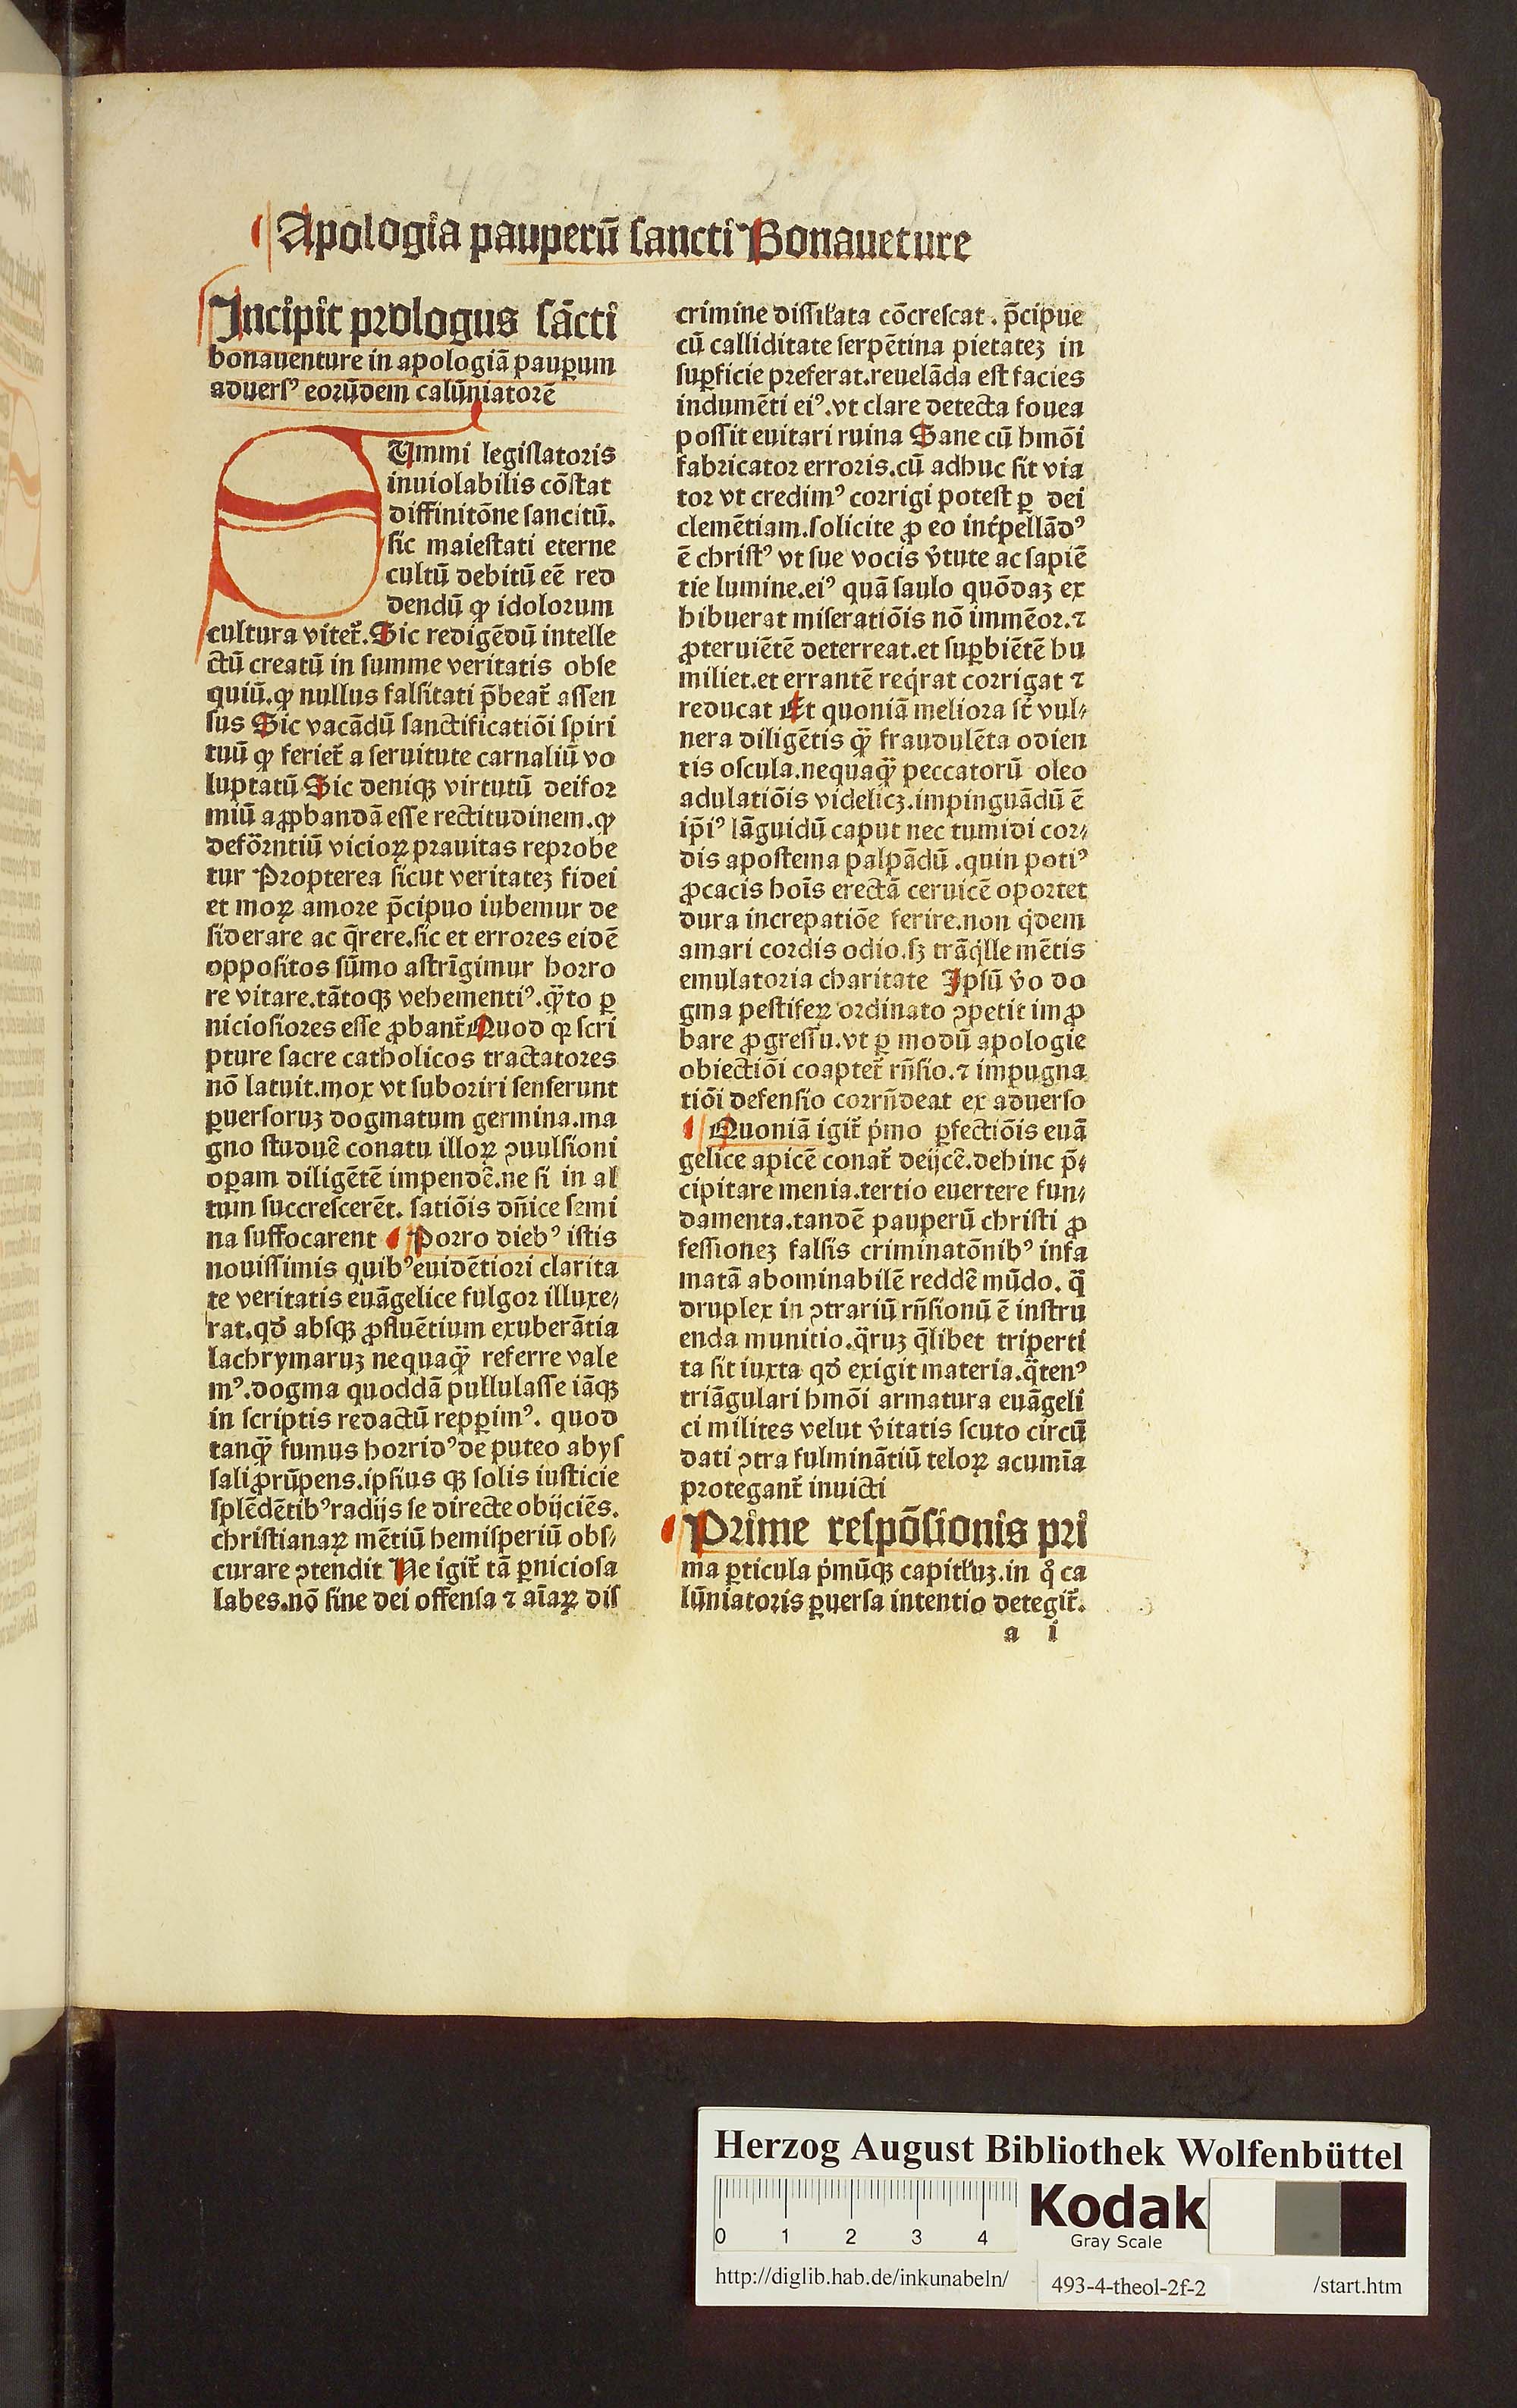 Apologia pauperū sancti Bonauēture
Incipit prologus sācti
bonauenture in apologiā pauꝑum
aduersꝰ eorūdem calūniatorē
SUmmi legislatoris
inuiolabilis cōstat
diffinitōne sancitū.
sic maiestati eterne
cultū debitū eē red
dendū ꝙ idolorum
cultura vitet̄. Sic redigēdū intelle
ctū creatū in summe veritatis obse
quiū.ꝙ nullus falsitati p̄beat̄ assen
sus Sic vacādū sanctificatiōi spiri
tuū ꝙ feriet̄ a seruitute carnaliū vo
luptatū Sic deniqꝫ virtutū deifor
miū aꝓbandā esse rectitudinem.ꝙ
deformtiū vicioꝝ prauitas reprobe
tur Propterea sicut veritateꝫ fidei
et moꝝ amore p̄cipuo iubemur de
siderare ac q̄rere.sic et errores eidē
oppositos sūmo astrīgimur horro
re vitare.tātoqꝫ vehementiꝰ.q̄to ꝑ
niciosiores esse ꝓbant̄ Quod qꝛ scri
pture sacre catholicos tractatores
nō latuit.mox vt suboriri senserunt
ꝑuersoruꝫ dogmatum germina.ma
gno studuē conatu illoꝝ ꝯuulsioni
oꝑam diligētē impendē.ne si in al
tum succrescerēt. satiōis dn̄ice semi
na suffocarent Porro diebꝰ istis
nouissimis quibꝰ euidētiori clarita
te veritatis euāgelice fulgor illuxe⸗
rat.qd̄ absqꝫ ꝓfluētium exuberātia
lachrymaruꝫ nequaq̄ referre vale
mꝰ.dogma quoddā pullulasse iāqꝫ
in scriptis redactū repꝑimꝰ. quod
tanq̄ fumus horridꝰ de puteo abys
sali ꝓrūpens.ipsius qꝫ solis iusticie
splēdētibꝰ radijs se directe obijciēs.
christianaꝝ mētiū hemisperiū obs⸗
curare ꝯtendit Ne igit̄ tā ꝑniciosa
labes.nō sine dei offensa ⁊ aīaꝝ dis
crimine dissīl'ata cōcrescat. p̄cipue
cū calliditate serpētina pietateꝫ in
suꝑficie preferat.reuelāda est facies
indumēti eiꝰ.vt clare detecta fouea
possit euitari ruina Sane cū hmōi
fabricator erroris.cū adhuc sit via
tor vt credimꝰ corrigi potest ꝑ dei
clemētiam.solicite ꝓ eo int̄pellādꝰ
ē christꝰ vt sue vocis v̄tute ac sapiē
tie lumine.eiꝰ quā saulo quōdaꝫ ex
hibuerat miseratiōis nō immēor.⁊
ꝓteruiētē deterreat.et suꝑbiētē hu
miliet.et errantē req̇rat corrigat ⁊
reducat Et quoniā meliora st̄ vul⸗
nera diligētis q̄ fraudulēta odien
tis oscula.nequaq̄ peccatorū oleo
adulatiōis videlicꝫ.impinguādū ē
ip̄iꝰ lāguidū caput nec tumidi cor⸗
dis apostema palpādū .quin potiꝰ
ꝓcacis hoīs erectā ceruicē oportet
dura increpatiōe ferire.non q̇dem
amari cordis odio.sꝫ trāq̇lle mētis
emulatoria charitate Ipsū v̄o do
gma pestifeꝝ ordinato ꝯpetit im ꝓ
bare ꝓgressu.vt ꝑ modū apologie
obiectiōi coaptet̄ rn̄sio.⁊ impugna
tiōi defensio corrn̄deat ex aduerso
Quoniā igit̄ ṗmo ꝑfectiōis euā
gelice apicē conat̄ deijcē.dehinc p̄⸗
cipitare menia.tertio euertere fun⸗
damenta.tandē pauperū christi ꝓ
fessioneꝫ falsis criminatōnibꝰ infa
matā abominabilē reddē mūdo. q̄
druplex in ꝯtrariū rn̄sionū ē instru
enda munitio.q̄ruꝫ q̄libet triperti
ta sit iuxta qd̄ exigit materia.q̄tenꝰ
triāgulari hmōi armatura euāgeli
ci milites velut v̄itatis scuto circū
dati ꝯtra fulminātiū teloꝝ acumīa
protegant̄ inuicti
Prime respōsionis pri
ma ꝑticula ṗmūqꝫ capitl'uꝫ.in q̊ ca
lūniatoris ꝑuersa intentio detegit̄.
a i
Herzog August Bibliothek Wolfenbüttel
0 1 2 3 4
Kodak
Gray Scale
http://diglib.hab.de/inkunabeln/
493-4-theol-2f-2
/start.htm